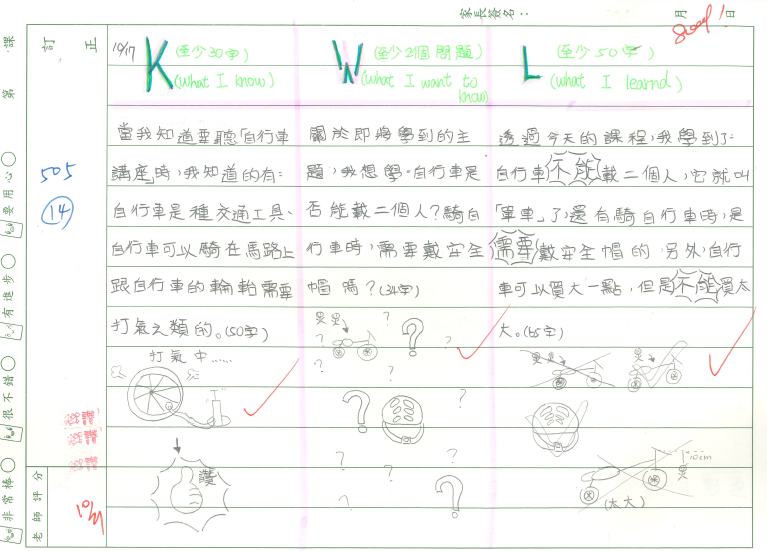 家長簽名：
月 日
Good!
課
第
訂正
要用心
有進步
很不錯
非常棒
老師評分
505
14
10/17
K (至少30字)
(what I know)
當我知道要聽「自行車
講座」時，我知道的有：
自行車是種交通工具、
自行車可以騎在馬路上
跟自行車的輪軸需要
打氣之類的。(50字)
打氣中……
讚
W (至少2個問題)
(what I want to know)
關於即將學到的主
題，我想學。自行車是
否能載二個人？騎自
行車時，需要戴安全
帽嗎？(34字)
? ? ? ? ?
? ? ? ? ? ?
L (至少50字)
(what I learnd)
透過今天的課程，我學到了：
自行車不能載二個人，它就叫
「單車」了，還有騎自行車時，是
需要戴安全帽的，另外，自行
車可以買大一點，但是不能買太
大。(65字)
(太大)